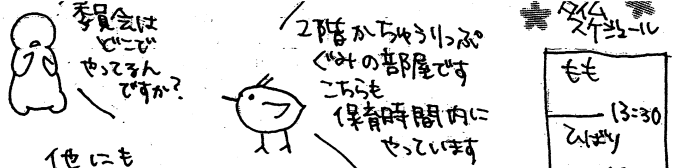 委員会は
どこで
やってるん
ですか?
2階かちゅうりっぷ
ぐみの部屋です
こちらも
保育時間内に
やっています
タイム
スケジュール
もも
13:30
ひばり
他にも